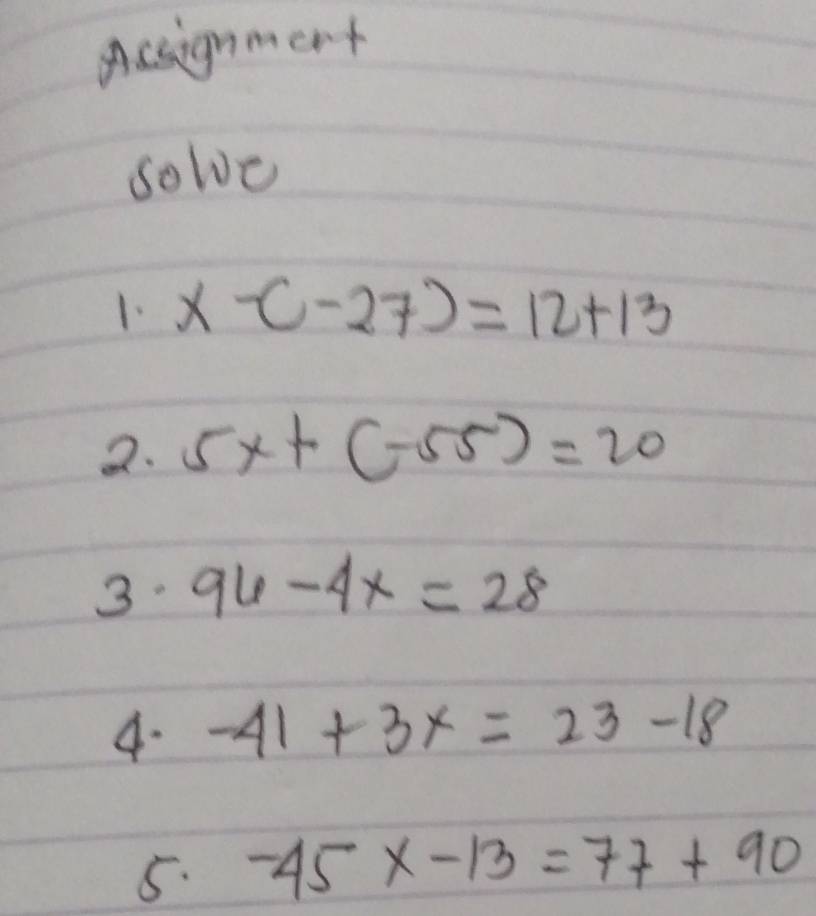 Assignment
Solve
1. x -(-27) = 12+13
2. 5x + (-55) = 20
3. 94 - 4x = 28
4. -41 + 3x = 23 -18
5. -45 x -13 = 77 + 90